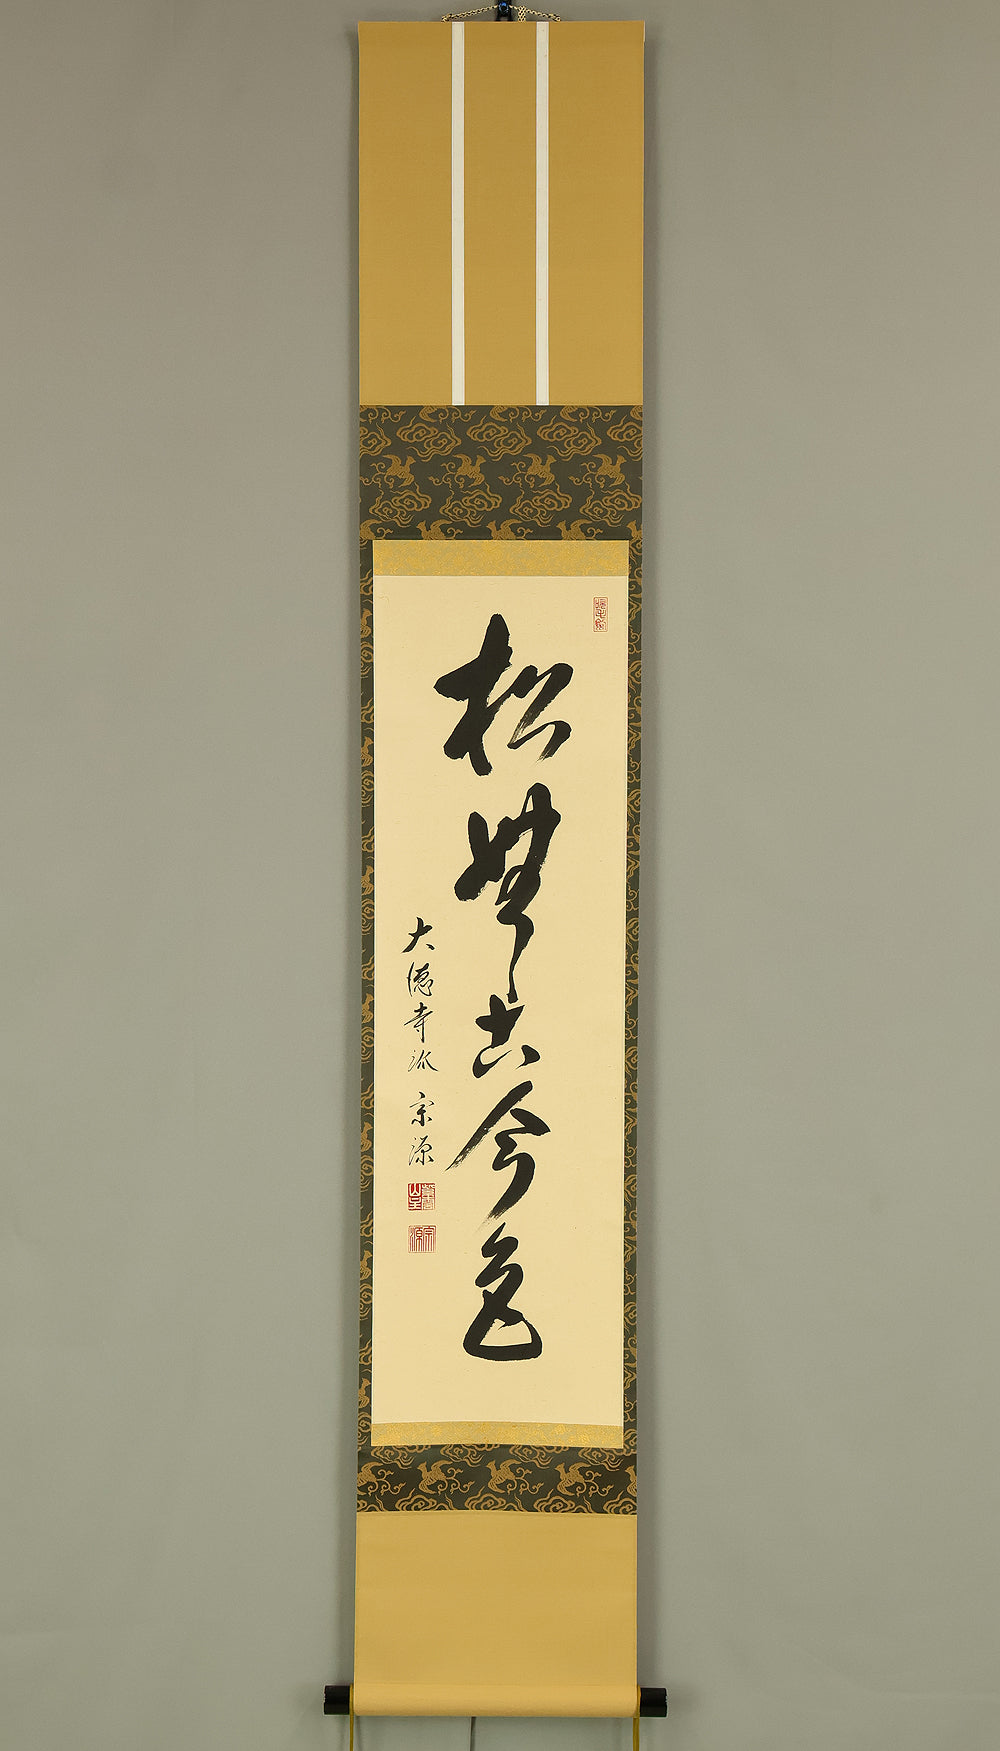 松無古今色
大徳寺派 宗源
宗源